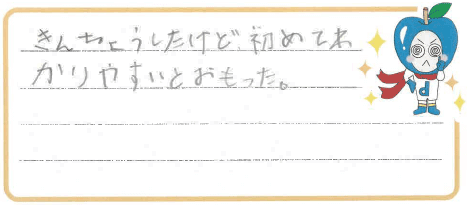 きんちょうしたけど、初めてわ
かりやすいとおもった。
d